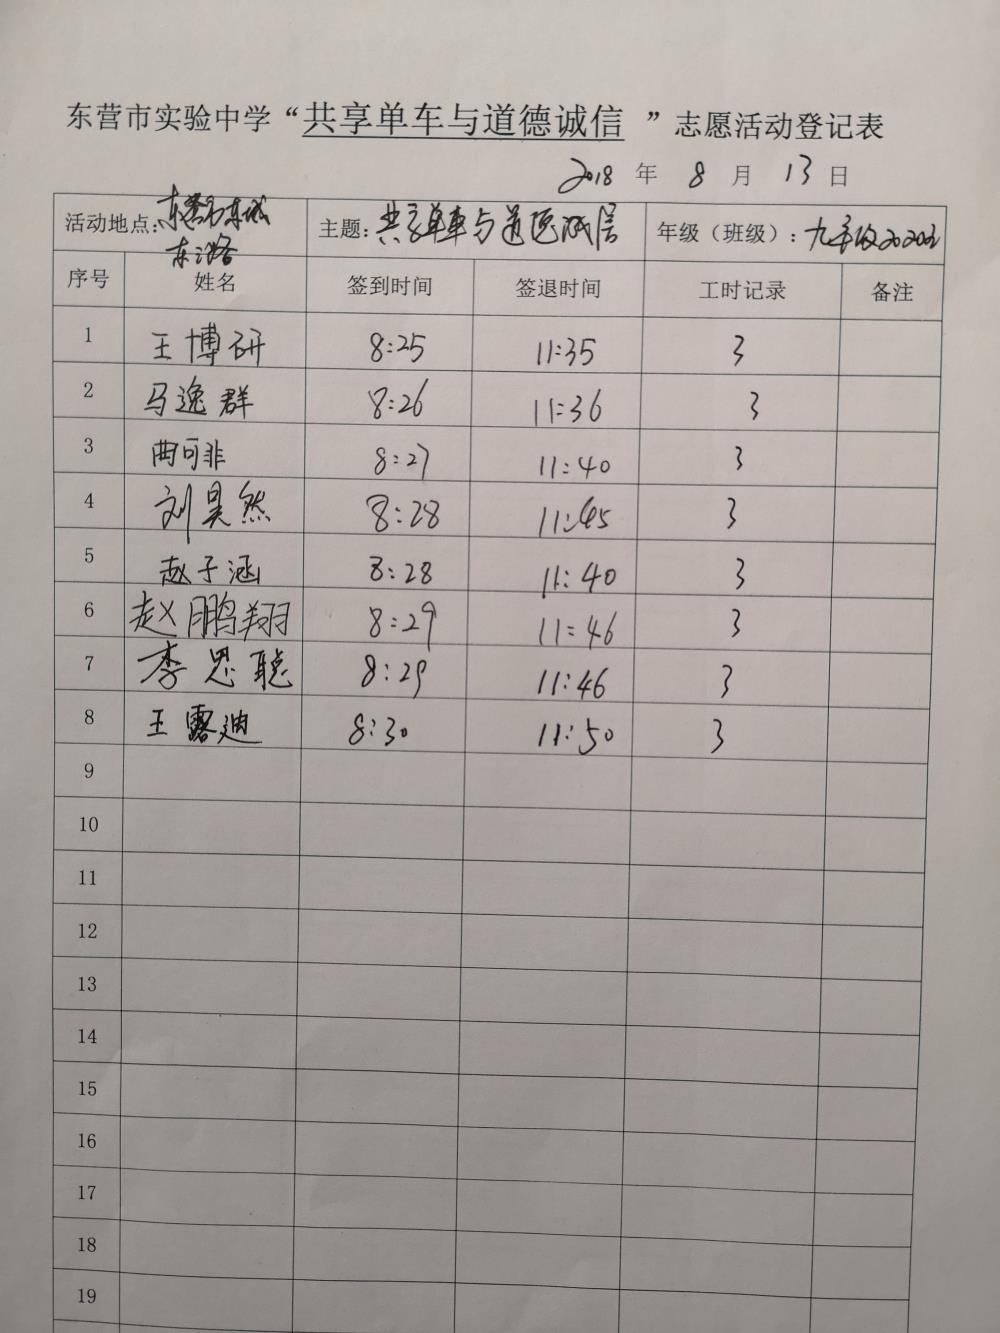 东营市实验中学“共享单车与道德诚信 ”志愿活动登记表
2018 年 8 月 13 日
活动地点：东营市东城 主题：共享单车与道德诚信 年级（班级）：九年级
东路
序号 姓名 签到时间 签退时间 工时记录 备注
1 王博研 8:25 11:35 3
2 马逸群 8:26 11:36 3
3 曲可非 8:27 11:40 3
4 刘昊然 8:28 11:45 3
5 赵子涵 8:28 11:40 3
6 赵鹏翔 8:29 11:46 3
7 李思聪 8:29 11:46 3
8 王露迪 8:30 11:50 3
9
10
11
12
13
14
15
16
17
18
19